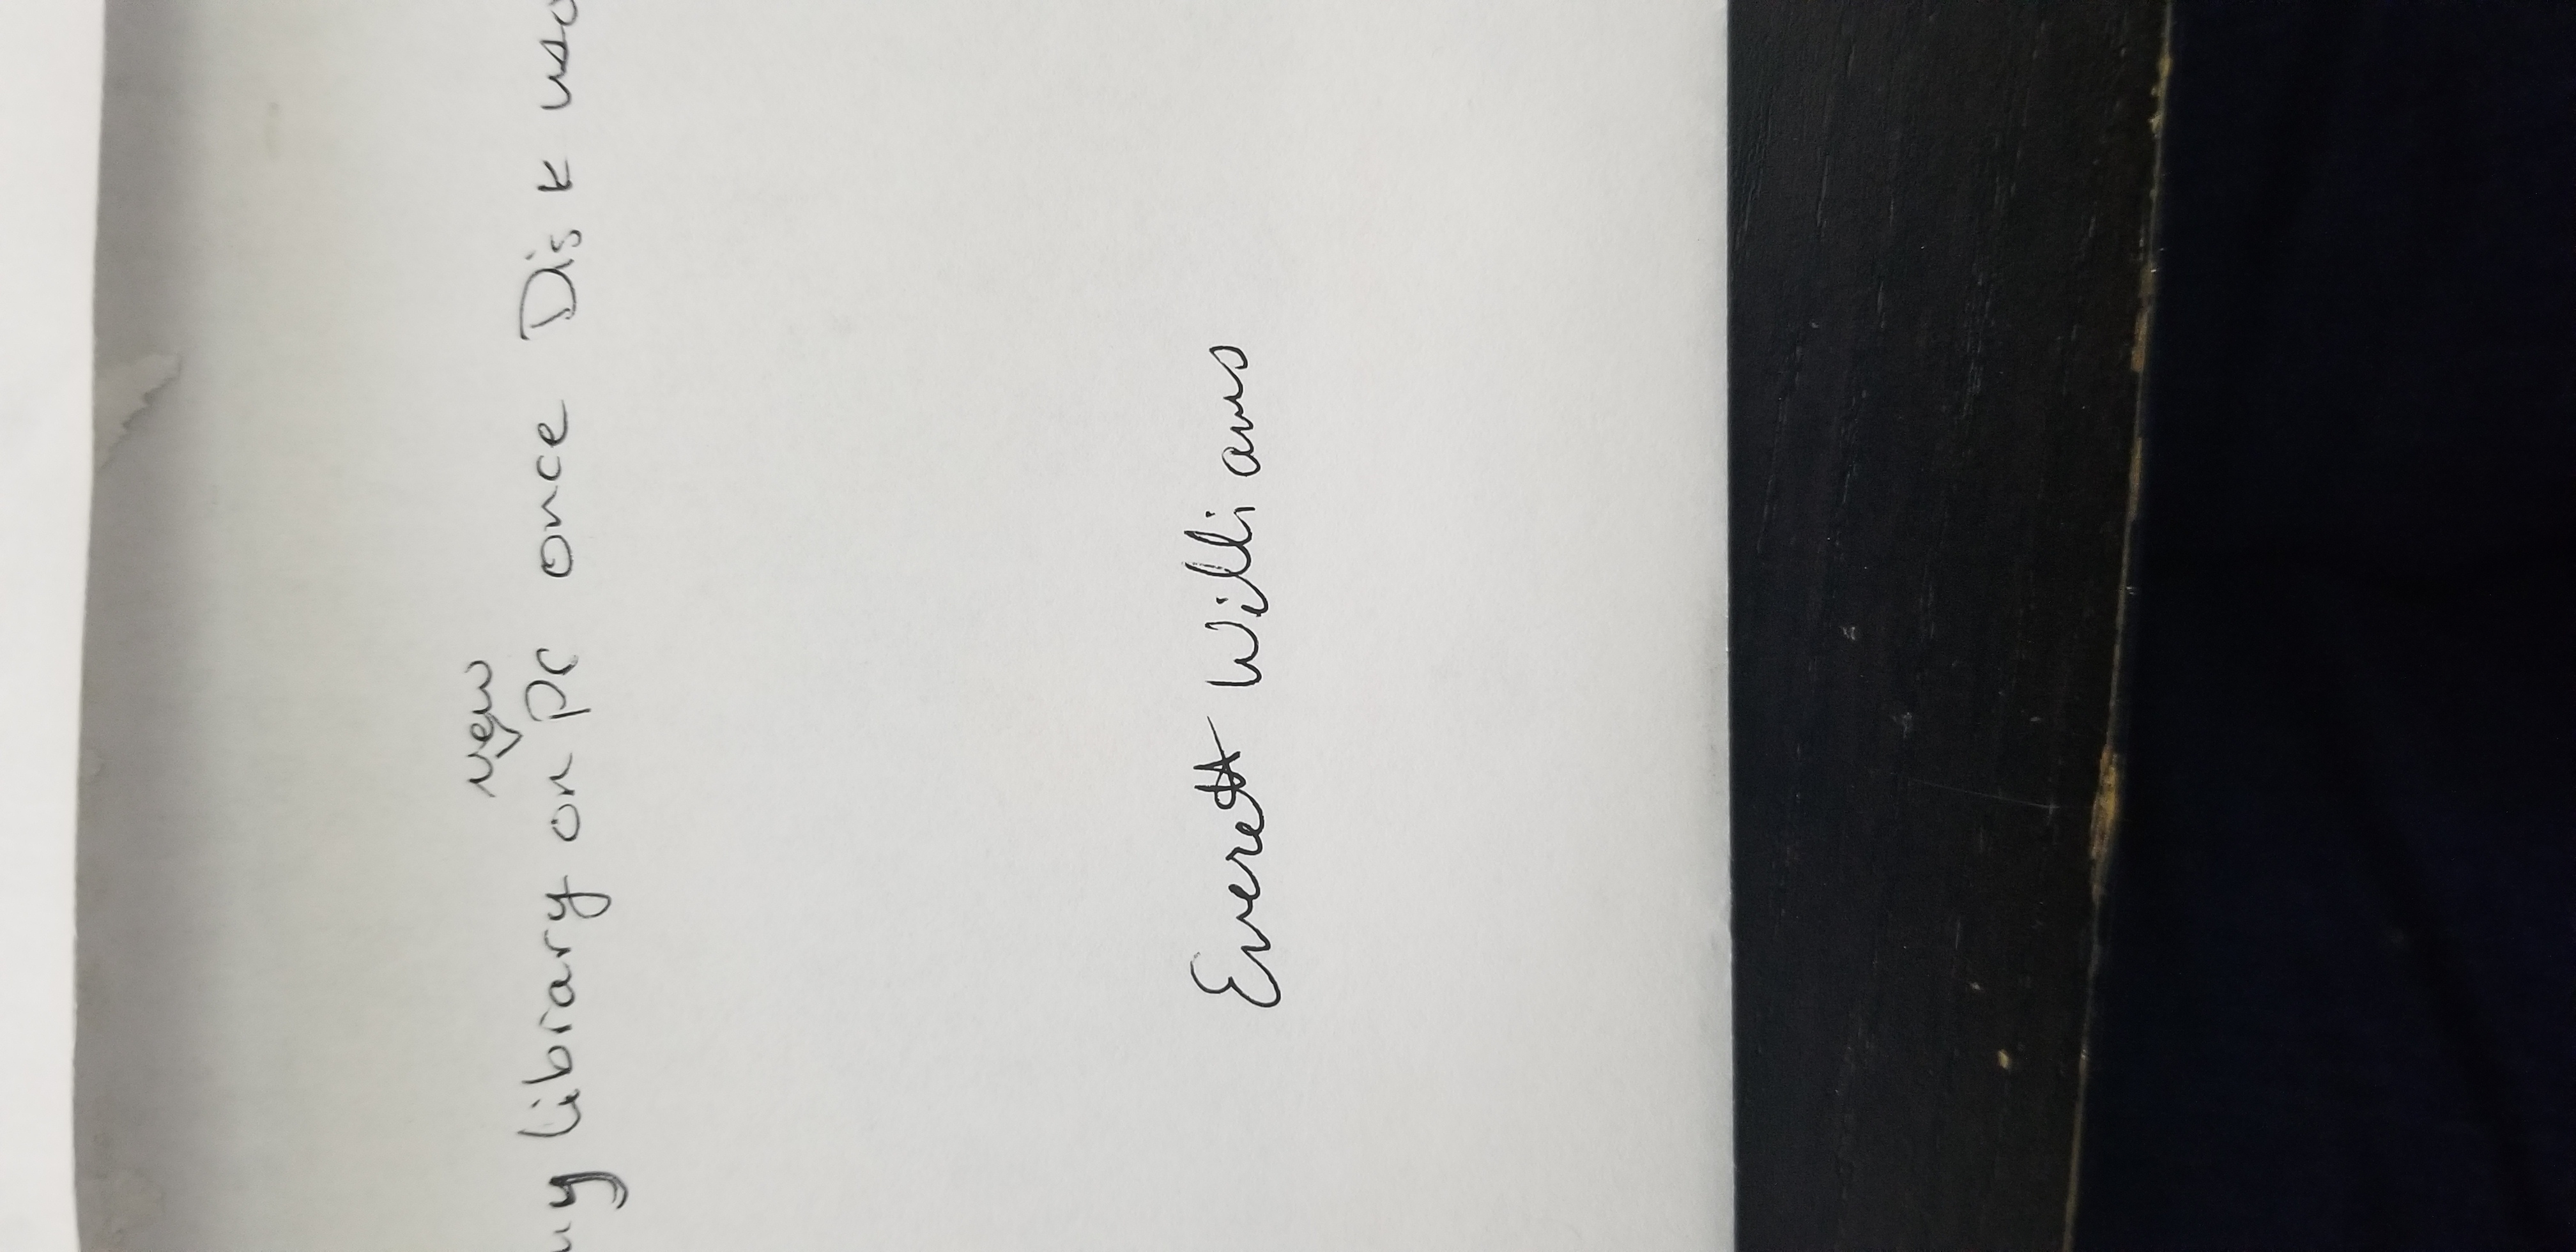 new
my library on PC once Disk use
Everett Williams